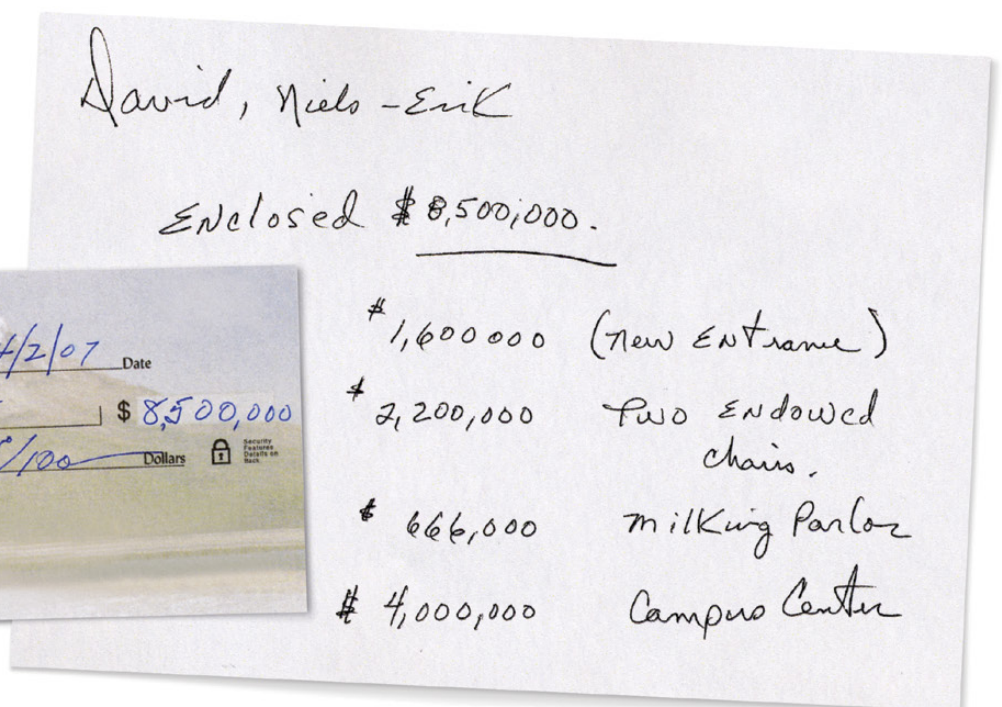 David, Niels-Erik
Enclosed $8,500,000.
$1,600000 (new Entrance)
$2,200,000 Two Endowed
chairs.
$666,000 Milking Parlor
$4,000,000 Campus Center
4/2/07 Date
$ 8,500,000
/100 Dollars
Security
Features
Details on
Back